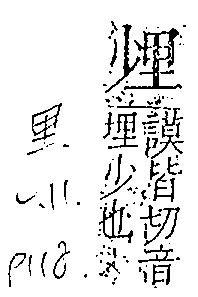 謨皆切音
埋少也
里
v.11.
p118.